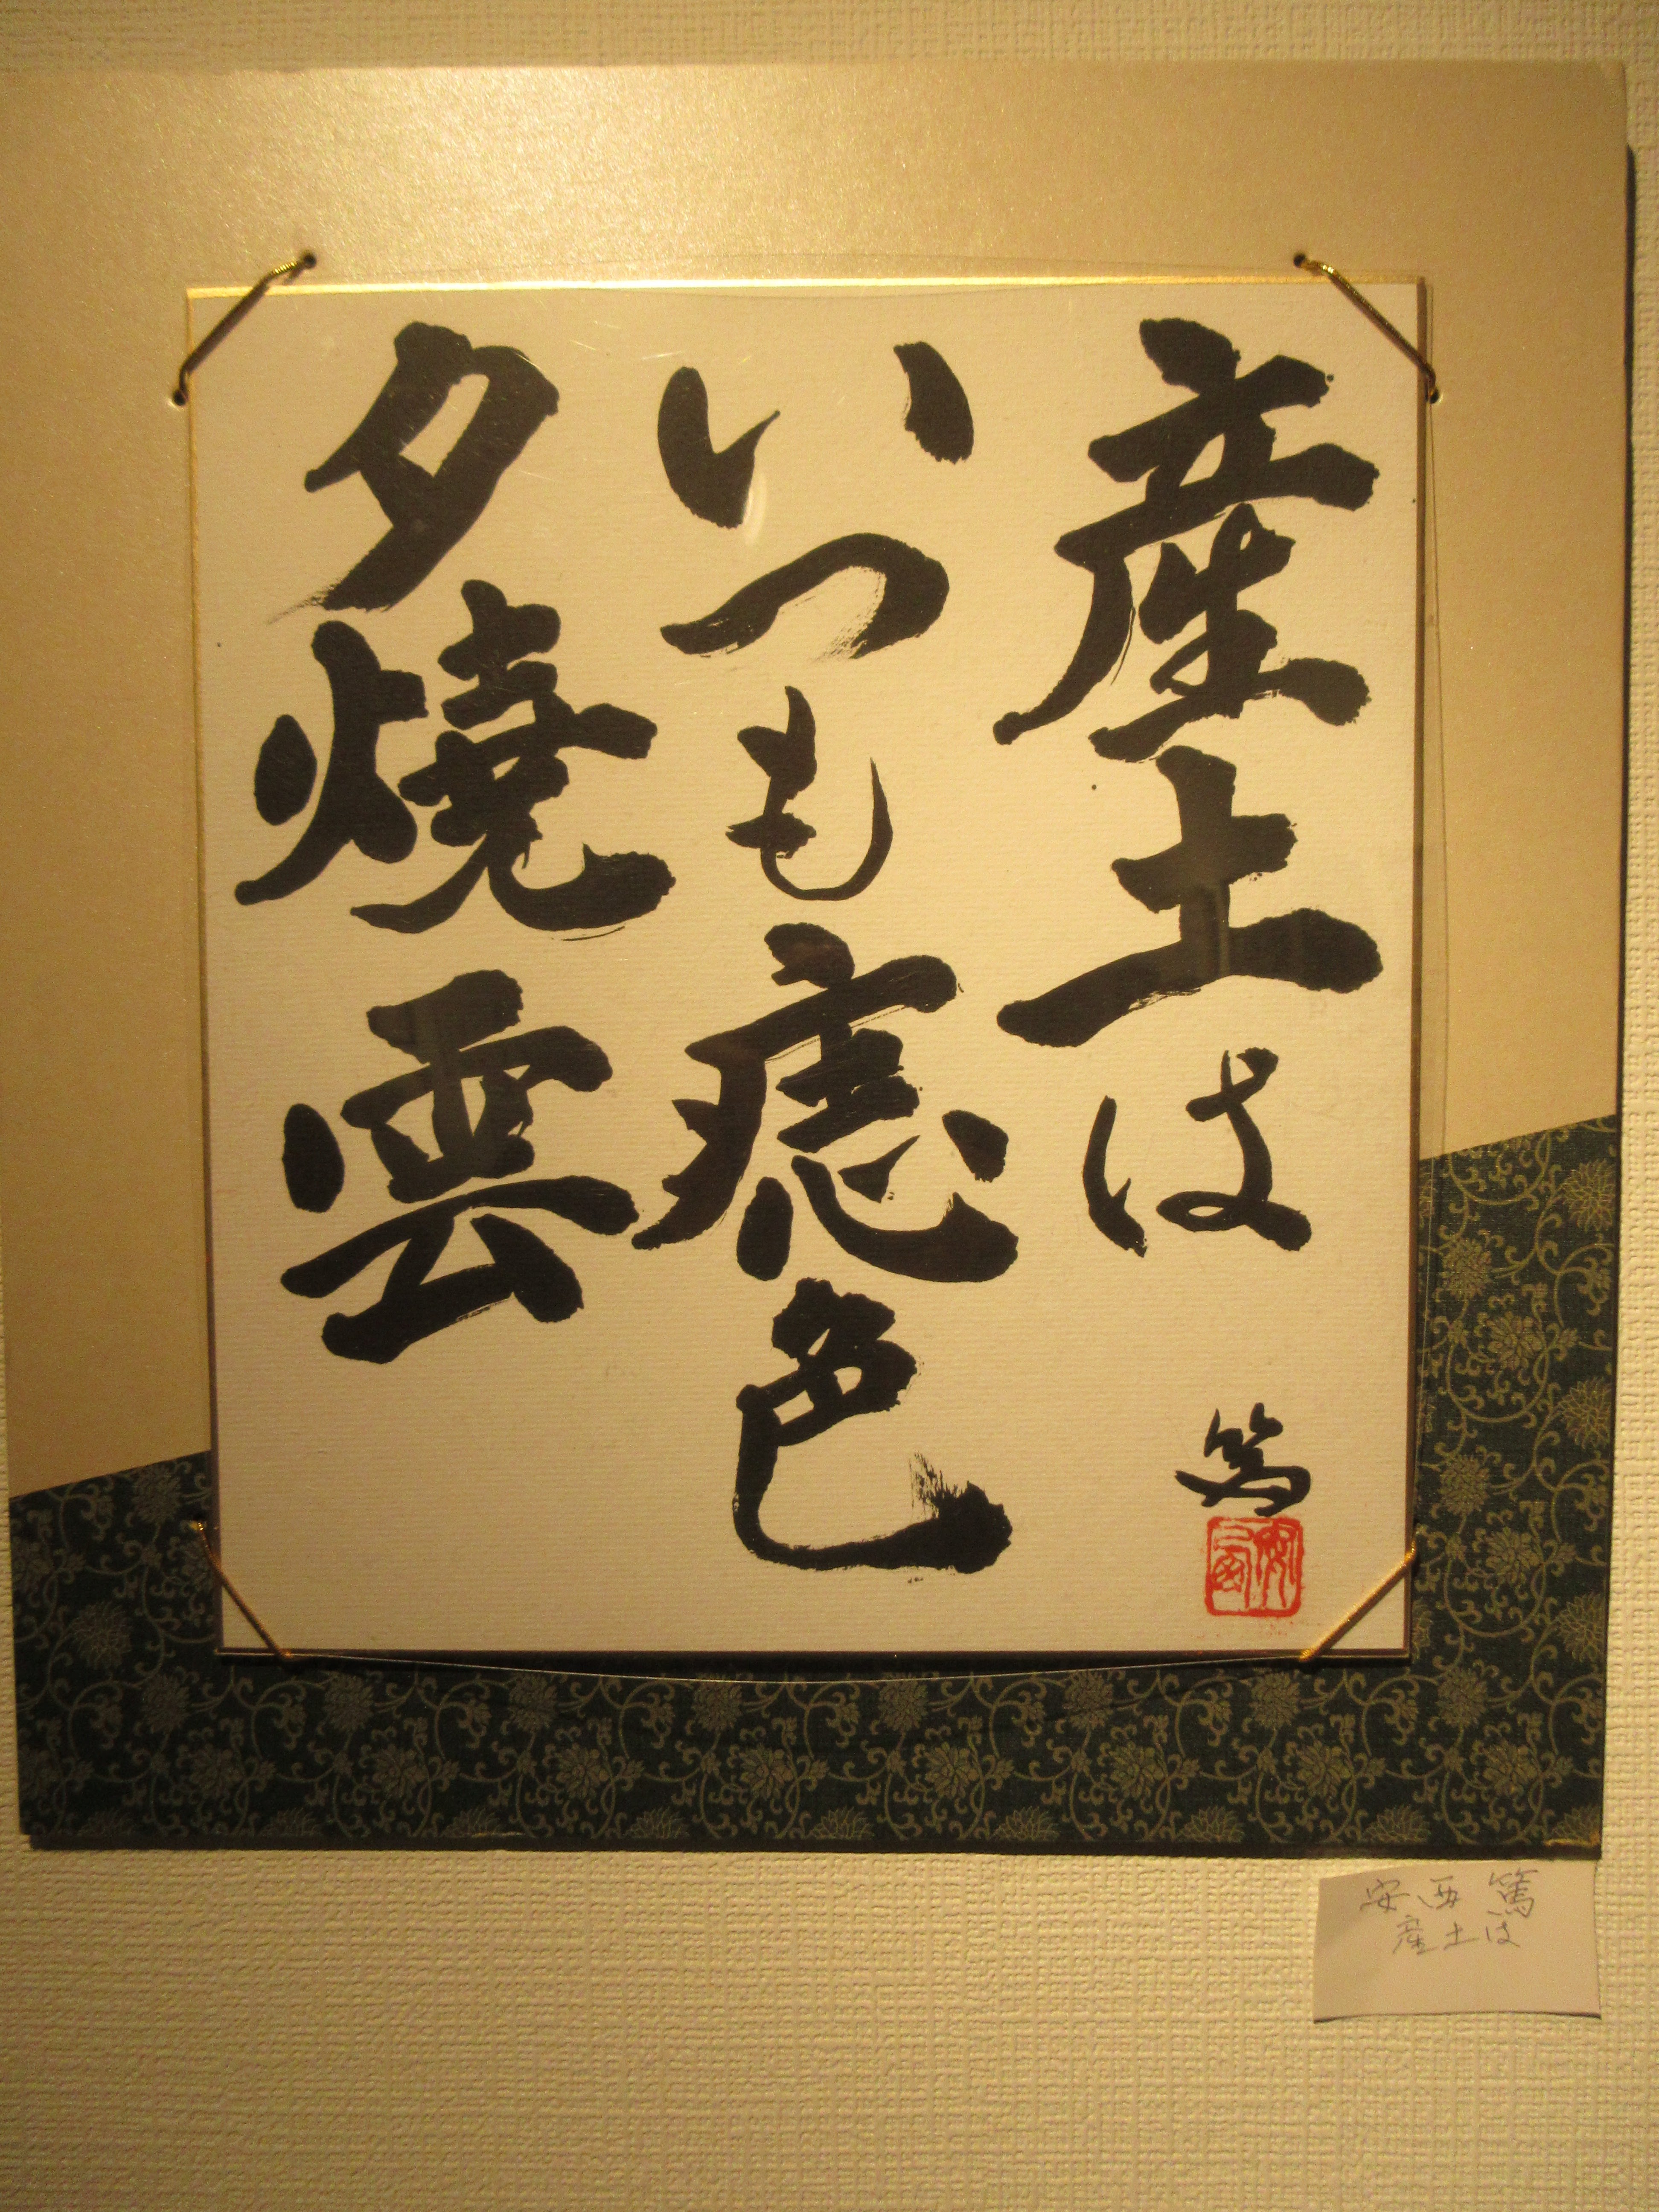 産土は
いつも痣色
夕焼雲
篤
安西
安西 篤
産土は